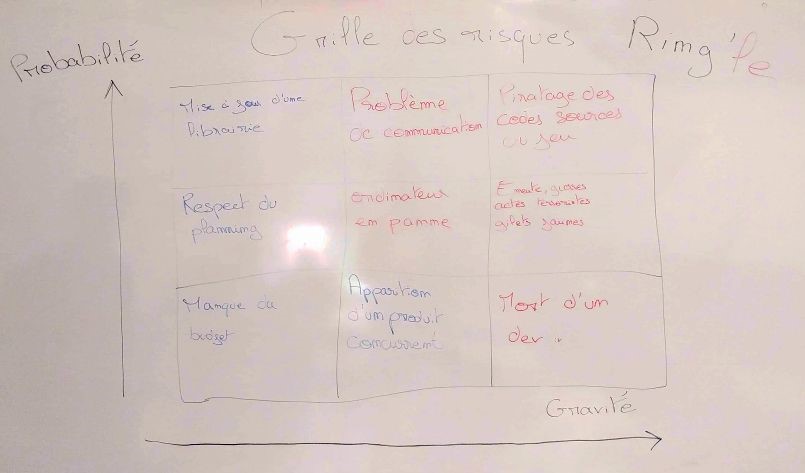 Grille des risques Ring'le
Probabilité
Mise à jour d'une
librairie
Problème
de communication
Piratage des
codes sources
du jeu
Respect du
planning
ordinateur
en panne
Emeute, grosses
actes terroristes
gilets jaunes
Manque du
budget
Apparition
d'un produit
concurrent
Mort d'un
dev..
Gravité